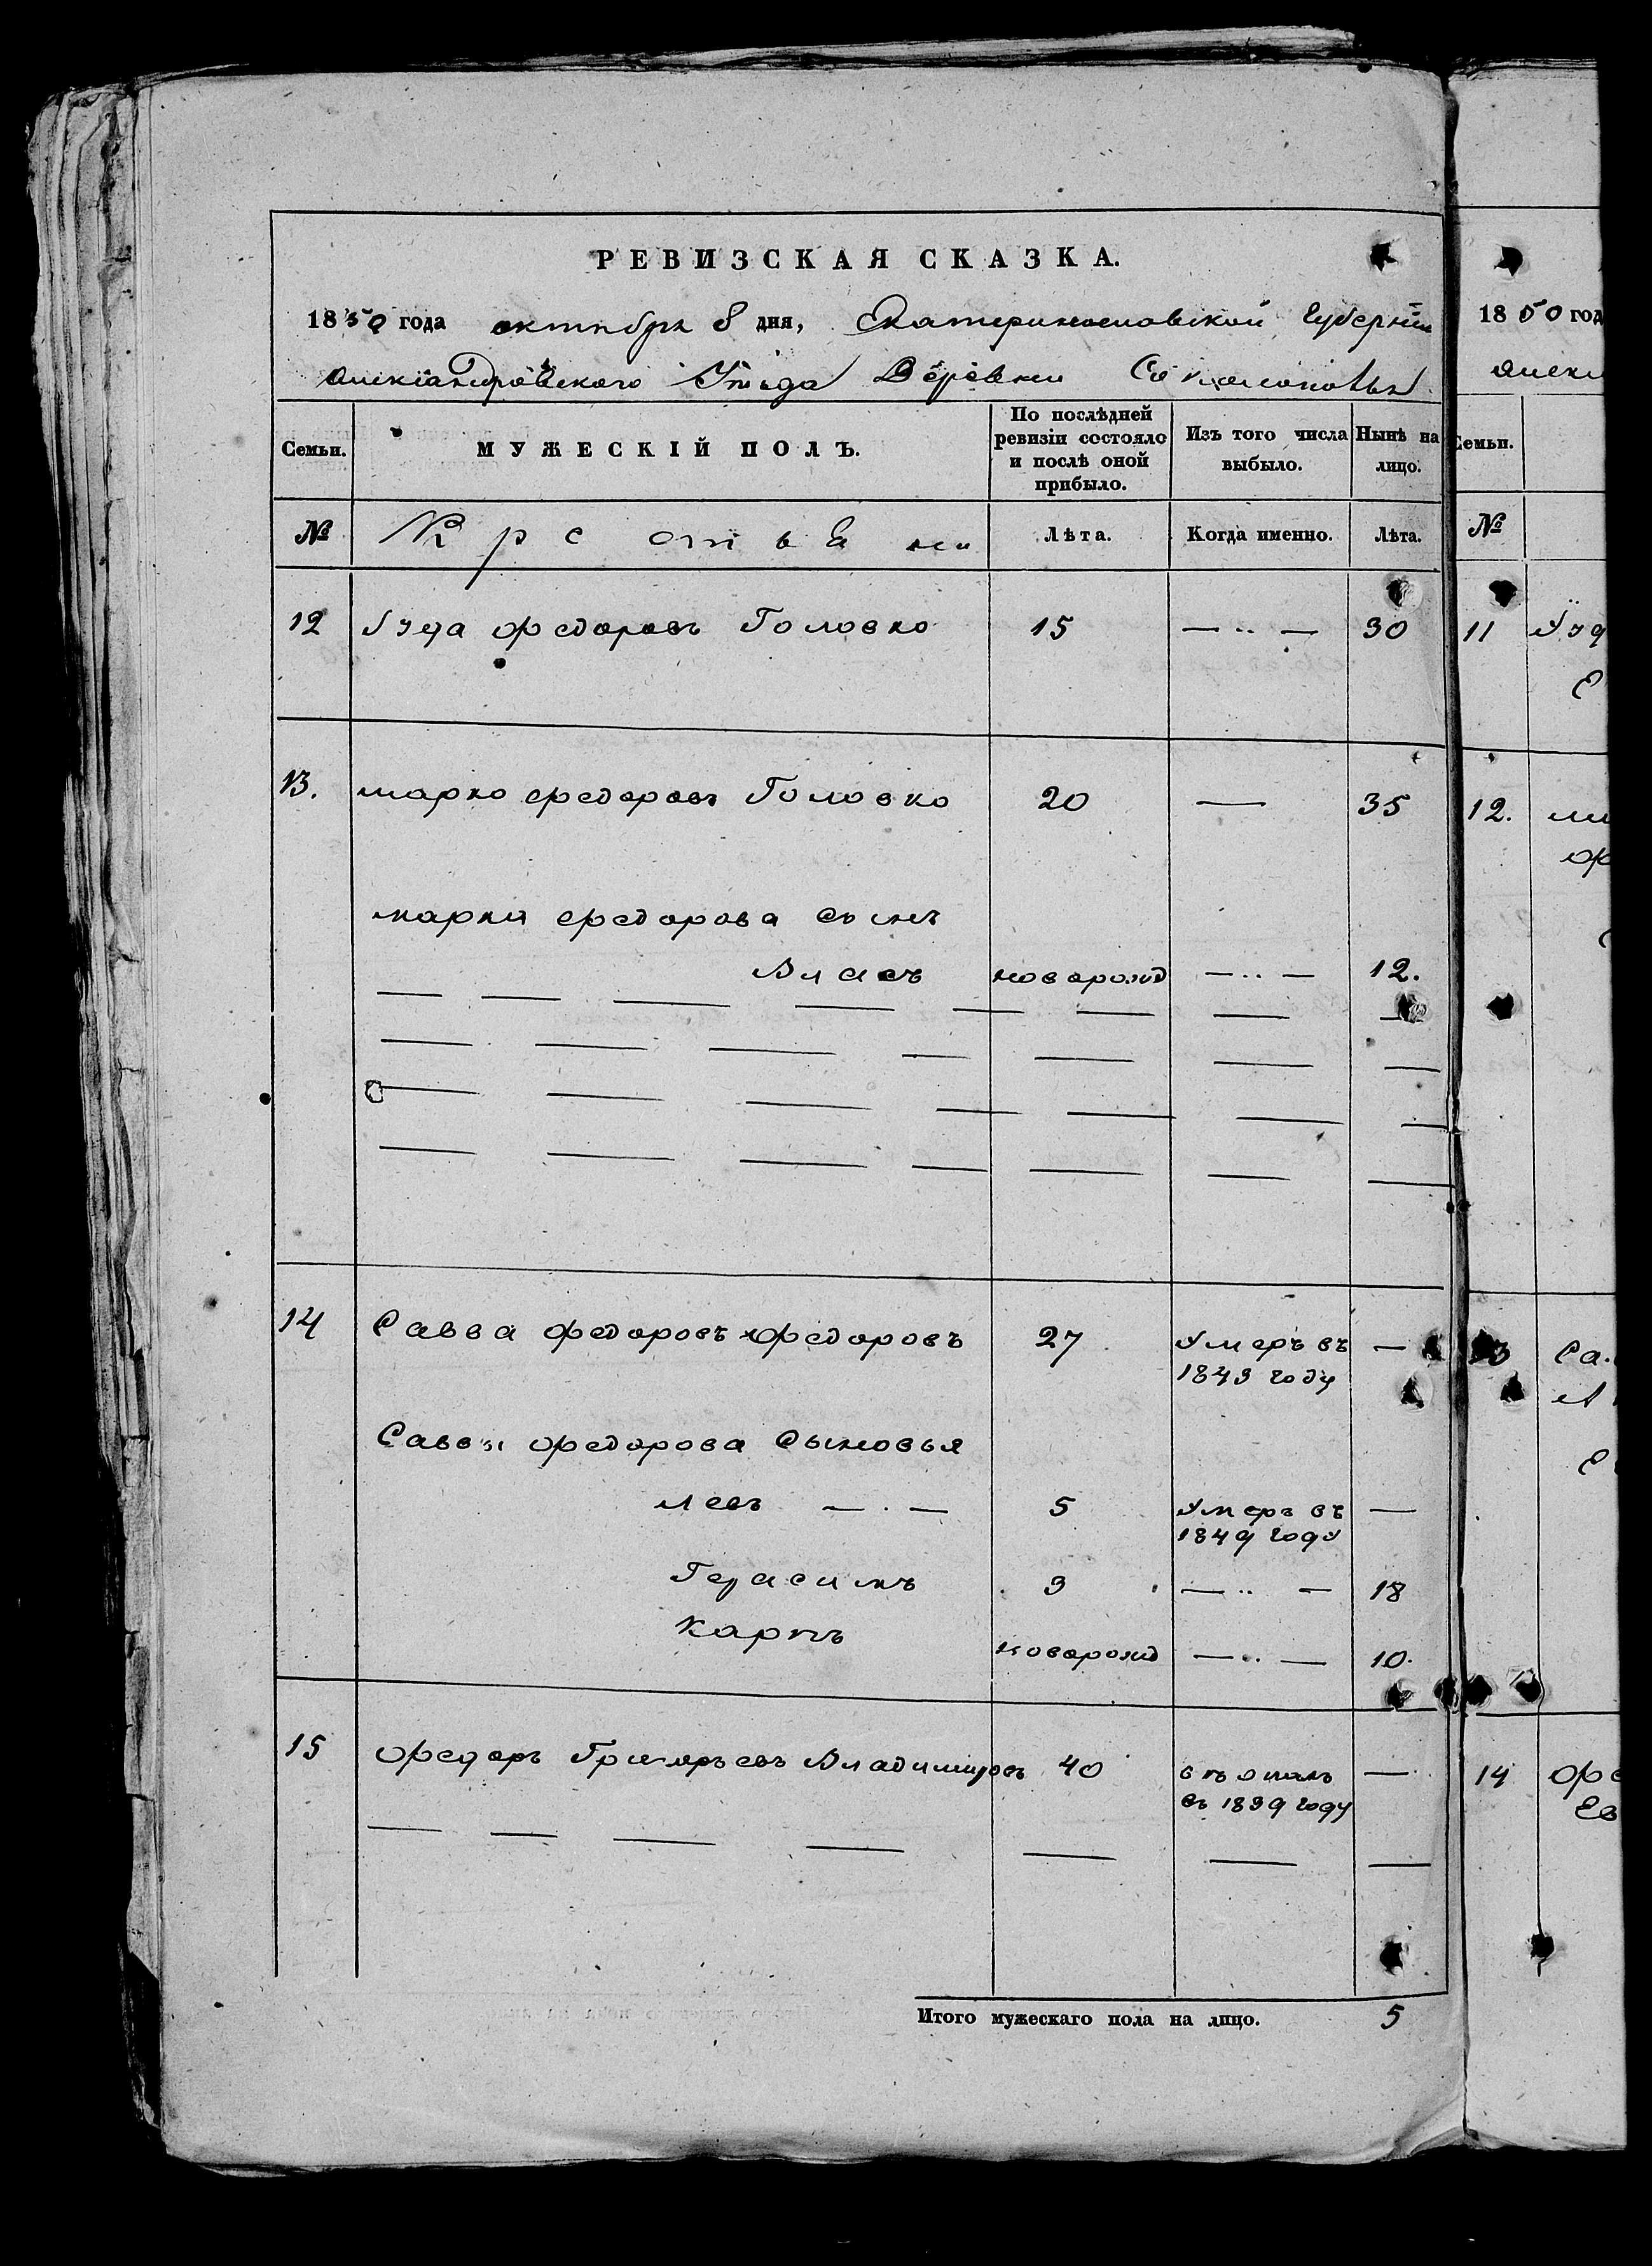 РЕВИЗСКАЯ СКАЗКА.
1850 года октября 8 дня, Екатеринославской Губерніи
Александровского Уезда Деревни
Семьи.
МУЖЕСКІЙ ПОЛЪ.
По послѣдней ревизіи состояло и послѣ оной прибыло.
Изъ того числа выбыло.
Нынѣ на лицо.
№ Крестьяни Лѣта. Когда именно. Лѣта.
12 Іуда Федоровъ Головко 15 — ·· — 30
13. Марко Федоровъ Головко 20 — 35
Марки Федорова сынъ
Власъ новорожд — ·· — 12.
14 Савва Федоровъ Федоровъ 27 Умеръ въ —
1843 году
Саввы Федорова Сыновья
Левъ — · — 5 Умеръ въ —
1849 году
Герасимъ 3 — ·· — 18
Карпъ новорожд — ·· — 10.
15 Федоръ Григорьевъ Владимировъ 40 —
въ 1839 году
Итого мужескаго пола на лицо. 5
1850 год
Семьи.
№
11
12.
13 Са
14
Ев